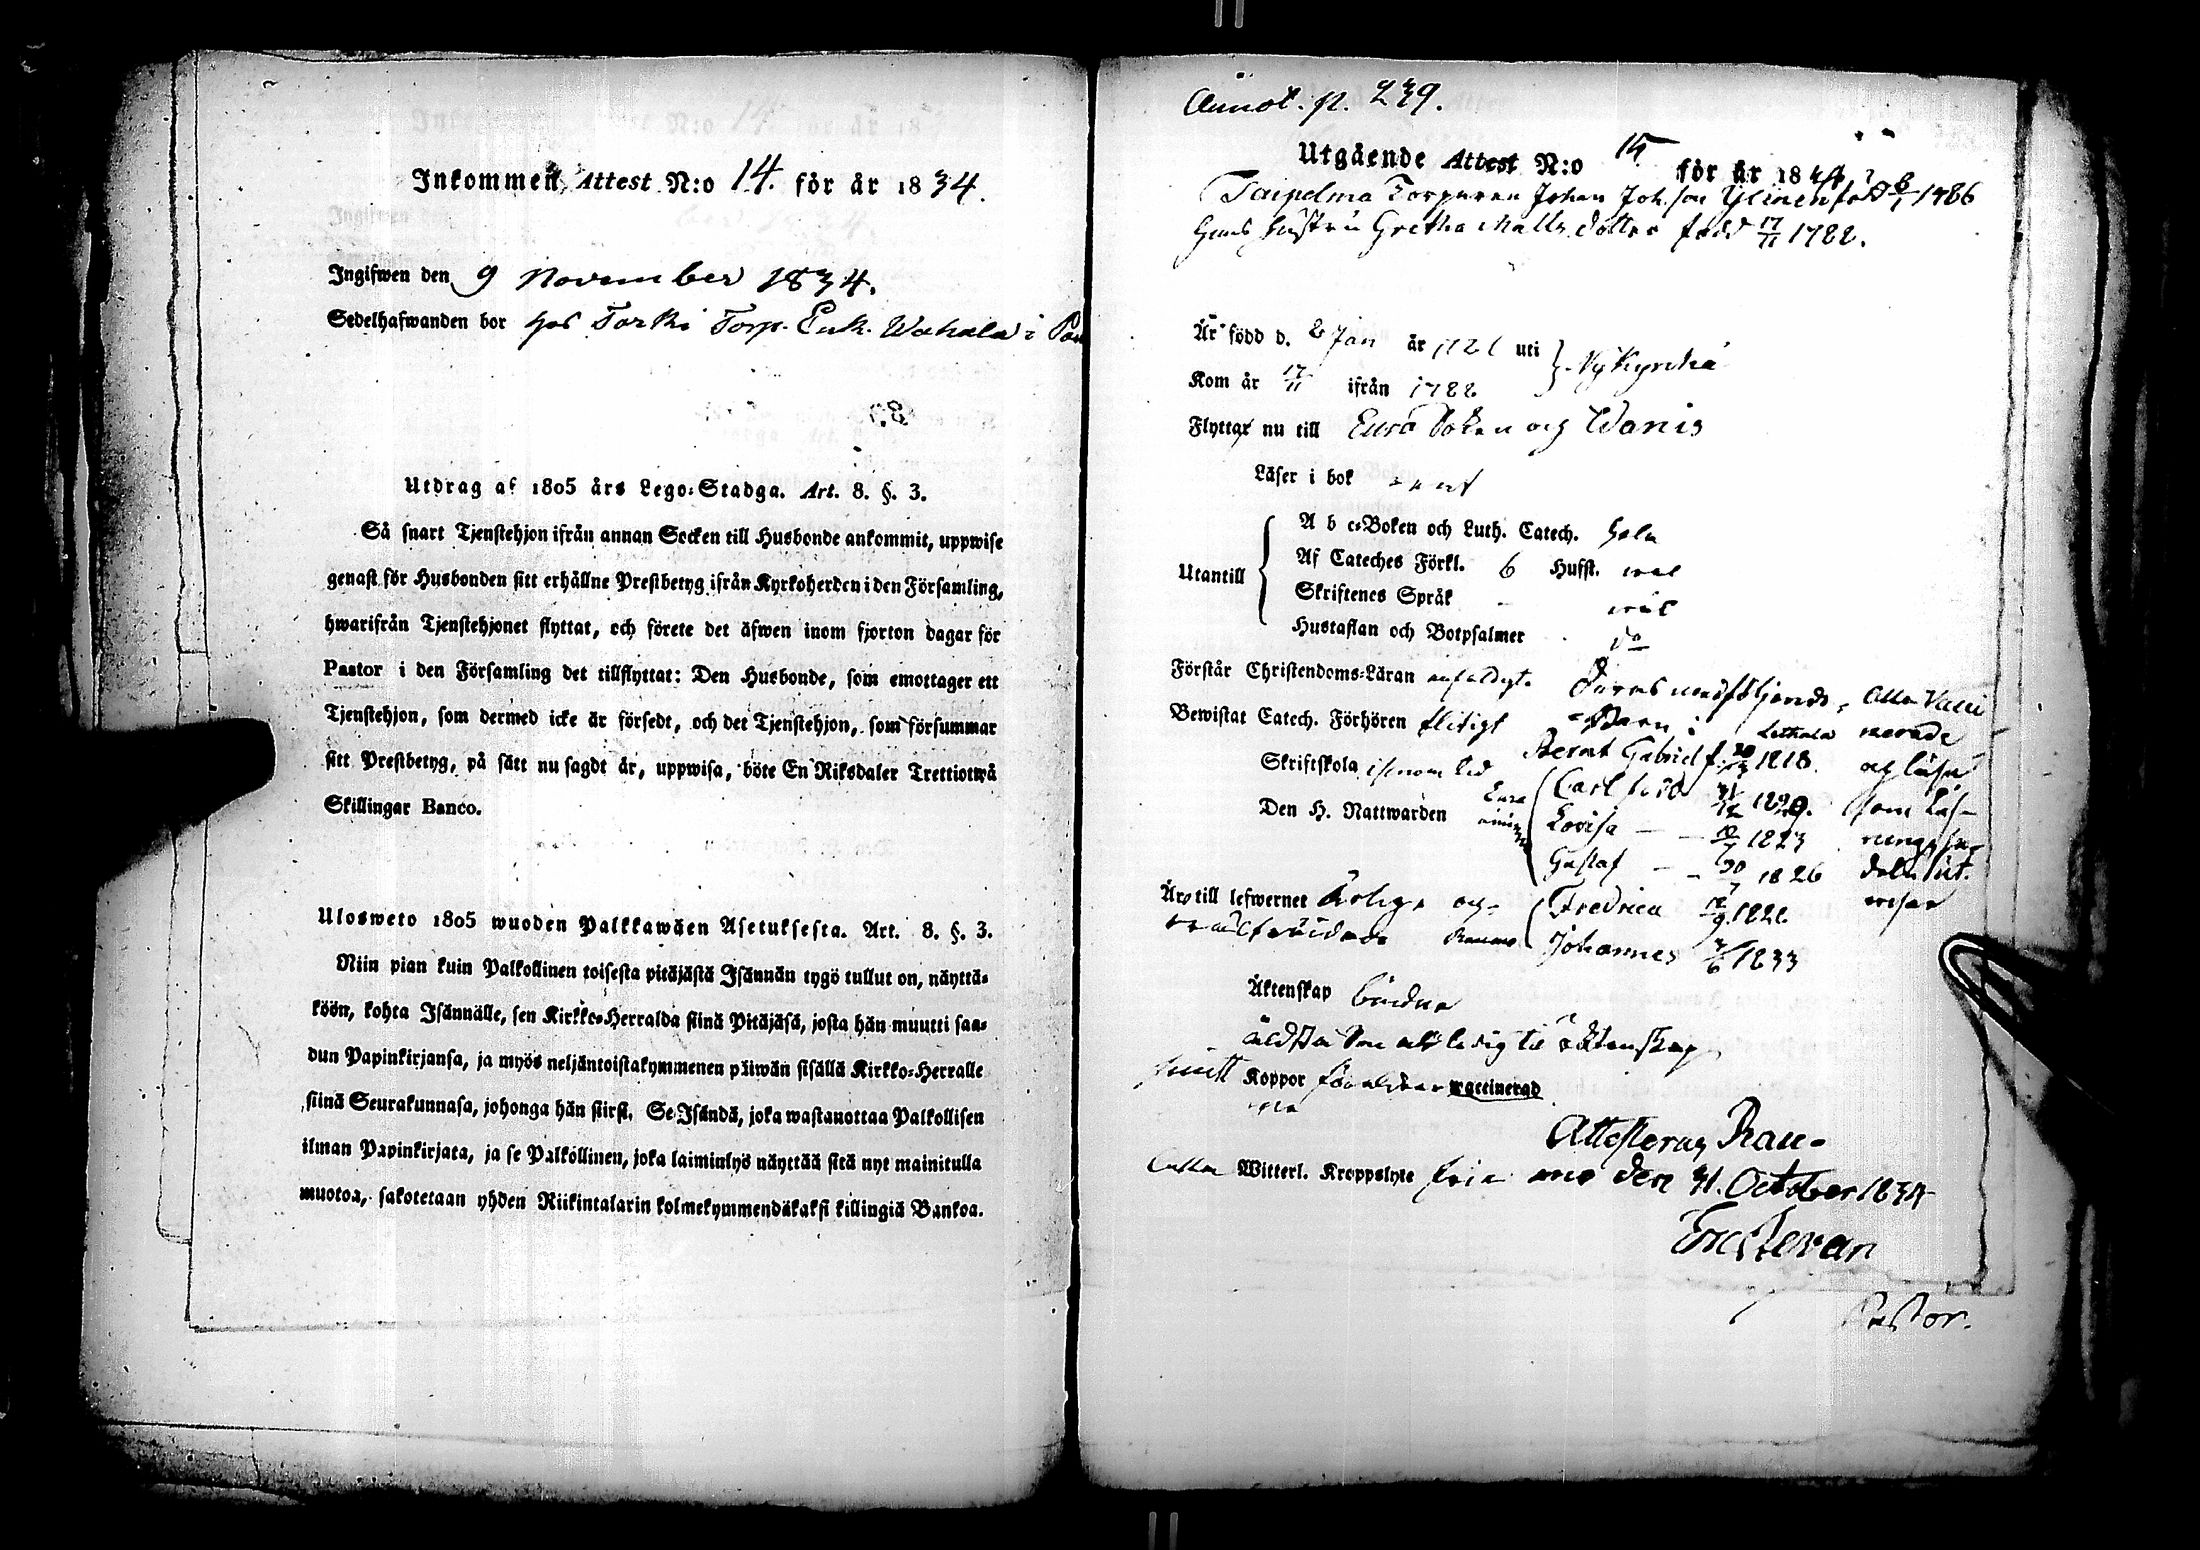 Inkommen Attest N:o 14. för år 1834.
Ingifwen den 9 November 1834.
Sedelhafwanden bor hos Torki Torp. Enk. Wahala i
Utdrag af 1805 års Lego-Stadga. Art. 8. §. 3.
Så snart Tjenstehjon ifrån annan Socken till Husbonde ankommit, uppwise
genast för Husbonden sitt erhållne Prestbetyg ifrån Kyrkoherden i den Församling,
hwarifrån Tjenstehjonet flyttat, och förete det äfwen inom fjorton dagar för
Pastor i den Församling det tillflyttat: Den Husbonde, som emottager ett
Tjenstehjon, som dermed icke är försedt, och det Tjenstehjon, som försummar
sitt Prestbetyg, på sätt nu sagdt är, uppwisa, böte En Riksdaler Trettiotwå
Skillingar Banco.
Ulosweto 1805 wuoden Palkkawäen Asetuksesta. Art. 8. §. 3.
Niin pian kuin Palkollinen toisesta pitäjästä Isännän tygö tullut on, näyttä-
köön, kohta Isännälle, sen Kirkko-Herralda siinä Pitäjäsä, josta hän muutti saa-
dun Papinkirjansa, ja myös neljäntoistakymmenen päiwän sisällä Kirkko-Herralle
siinä Seurakunnasa, johonga hän siirsi. Se Isändä, joka wastanottaa Palkollisen
ilman Papinkirjata, ja se Palkollinen, joka laiminlyö näyttää sitä nyt mainitulla
muotoa, sakotetaan yhden Riikintalarin kolmekymmendäkaksi killingiä Bankoa.
Annot. p. 239.
Utgående Attest N:o 15 för år 18
Johan Joh. son 1786
Hans hustru Gretha Matts dotter född 17/11 1788.
Är född d. 2 Jan år uti
Kom år 17/11 ifrån 1788
Flyttar nu till Eura Soken och Wanis
Läser i bok rent
Utantill
A b c-Boken och Luth. Catech. hela
Af Cateches Förkl. 6 Hufst. wäl
Skriftenes Språk wäl
Hustaflan och Botpsalmer do
Förstår Christendoms-Läran enfaldigt. Deras medföljande Alla Vacci
Bewistat Catech. Förhören flitigt Barn: nerade
Skriftskola Gabriel f. 1818. och läsa
Den H. Nattwarden Eura Carl född 31/12 1820. som Läs-
Lovisa 10/ 1823
Gustaf 30/7 1826
Äro till lefwernet Ärlige och Fredrica 12/9 1828
wälfräjdade Raumo Johannes 3/6 1833
Äktenskap bundne
äldsta Son ledig til äktenskap
haft Koppor föräldrar waccinerad
Witterl. Kroppslyte frie
Attesteras Rau-
mo den 31. October 1834
Pastor.